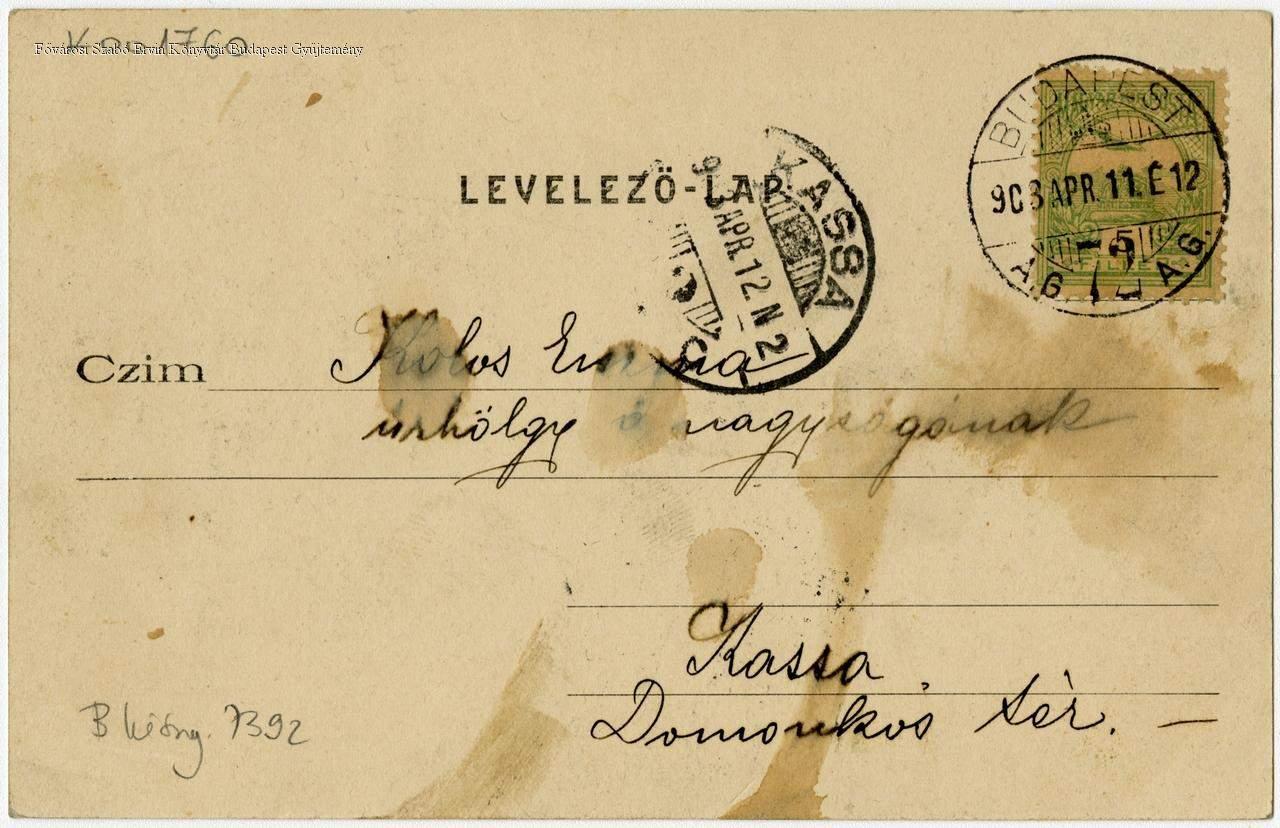 Fővárosi Szabó Ervin Könyvtár Budapest Gyűjtemény
1760
BUDAPEST
908 APR. 11. É 12
A.G. 72 A.G.
5
LEVELEZŐ-LAP.
KASSA
908 APR. 12. N 2
Czim Kolos Emma
úrhölgy ő nagyságának
Kassa
Domonkos tér. —
B 7392